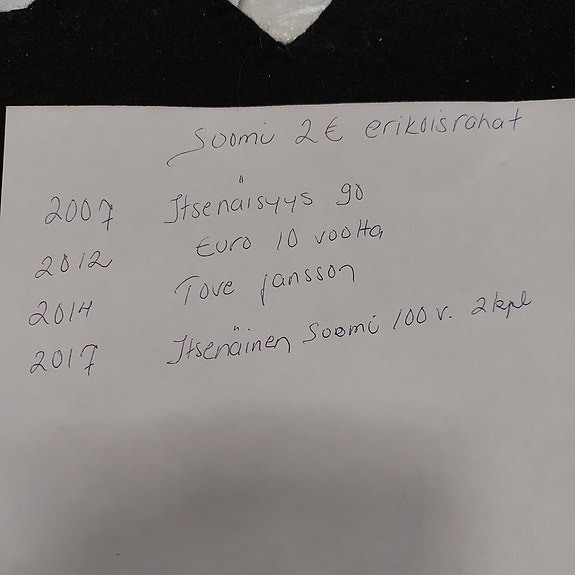 Suomi 2€ erikoisrahat
2007 Itsenäisyys 90
2012 Euro 10 vootta
2014 Tove Jansson
2017 Itsenäinen Suomi 100 v. 2kpl